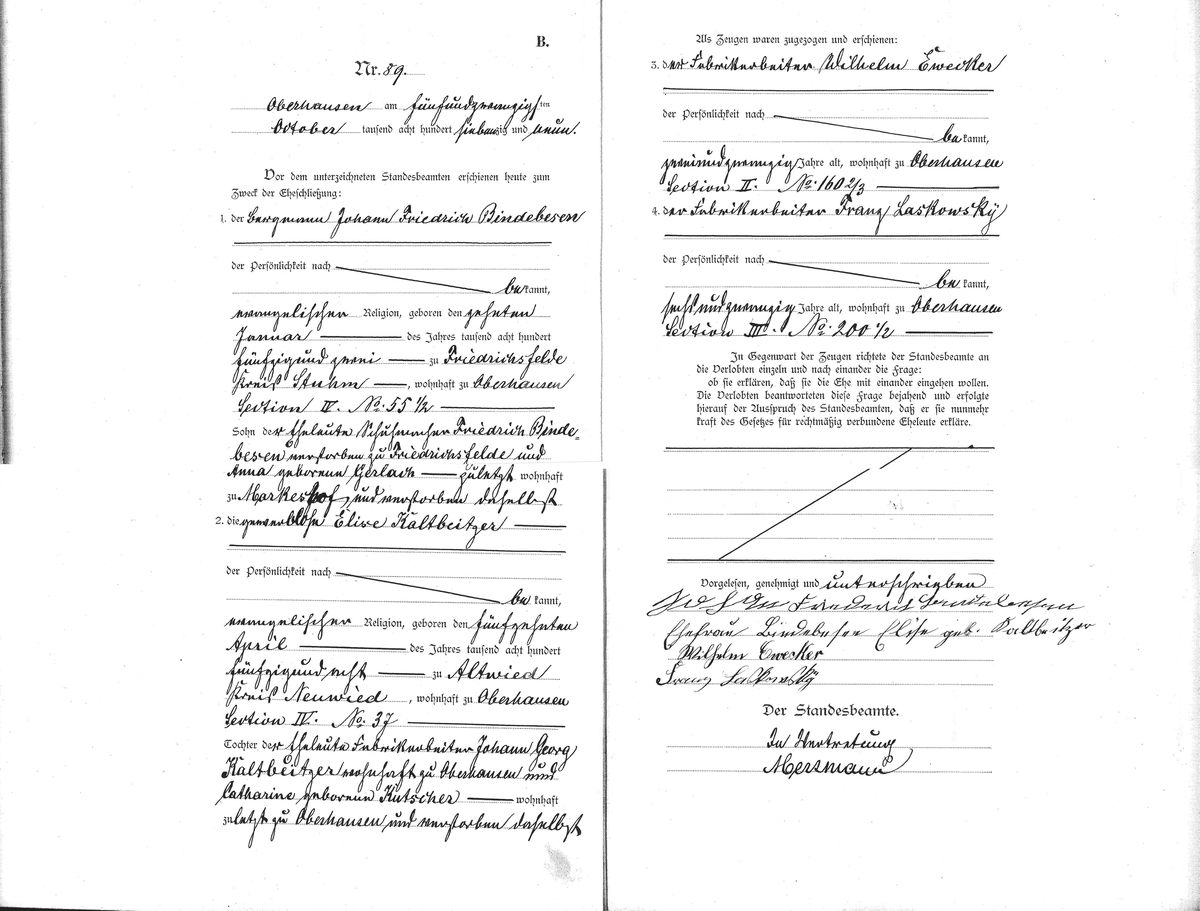 B.
Nr. 89.
Oberhausen am fünfundzwanzigsten
October tausend acht hundert siebenzig und neun.
Vor dem unterzeichneten Standesbeamten erschienen heute zum
Zweck der Eheschließung:
1. der Bergmann Johann Friedrich Bindebesen
der Persönlichkeit nach
bekannt,
evangelischer Religion, geboren den zehnten
Januar des Jahres tausend acht hundert
fünfzig und zwei zu Friedrichsfelde
Kreis Stuhm, wohnhaft zu Oberhausen
Section IV. No. 55 1/2
Sohn der Eheleute Schuhmacher Friedrich Binde-
besen verstorben zu Friedrichsfelde und
Anna geborene Gerlach zuletzt wohnhaft
zu Markeshof, und verstorben daselbst
2. die gewerblose Elise Kaltbeitzer
der Persönlichkeit nach
bekannt,
evangelischer Religion, geboren den fünfzehnten
April des Jahres tausend acht hundert
fünfzig und acht zu Altwied
Kreis Neuwied, wohnhaft zu Oberhausen
Section IV. No. 37
Tochter der Eheleute Fabrikarbeiter Johann Georg
Kaltbeitzer wohnhaft zu Oberhausen und
Catharine geborene Kutscher wohnhaft
zuletzt zu Oberhausen und verstorben daselbst
Als Zeugen waren zugezogen und erschienen:
3. der Fabrikarbeiter Wilhelm Ewecker
der Persönlichkeit nach
bekannt,
zweiundzwanzig Jahre alt, wohnhaft zu Oberhausen
Section II. No. 160 2/3
4. der Fabrikarbeiter Franz Laskowsky
der Persönlichkeit nach
bekannt,
sechsundzwanzig Jahre alt, wohnhaft zu Oberhausen
Section III. No. 200 1/2
In Gegenwart der Zeugen richtete der Standesbeamte an
die Verlobten einzeln und nach einander die Frage:
ob sie erklären, daß sie die Ehe mit einander eingehen wollen.
Die Verlobten beantworteten diese Frage bejahend und erfolgte
hierauf der Ausspruch des Standesbeamten, daß er sie nunmehr
kraft des Gesetzes für rechtmäßig verbundene Eheleute erkläre.
Vorgelesen, genehmigt und unterschrieben
Ehefrau Bindebesen Elise geb. Kaltbeitzer
Wilhelm Ewecker
Franz Laskowsky
Der Standesbeamte.
In Vertretung
Mersmann